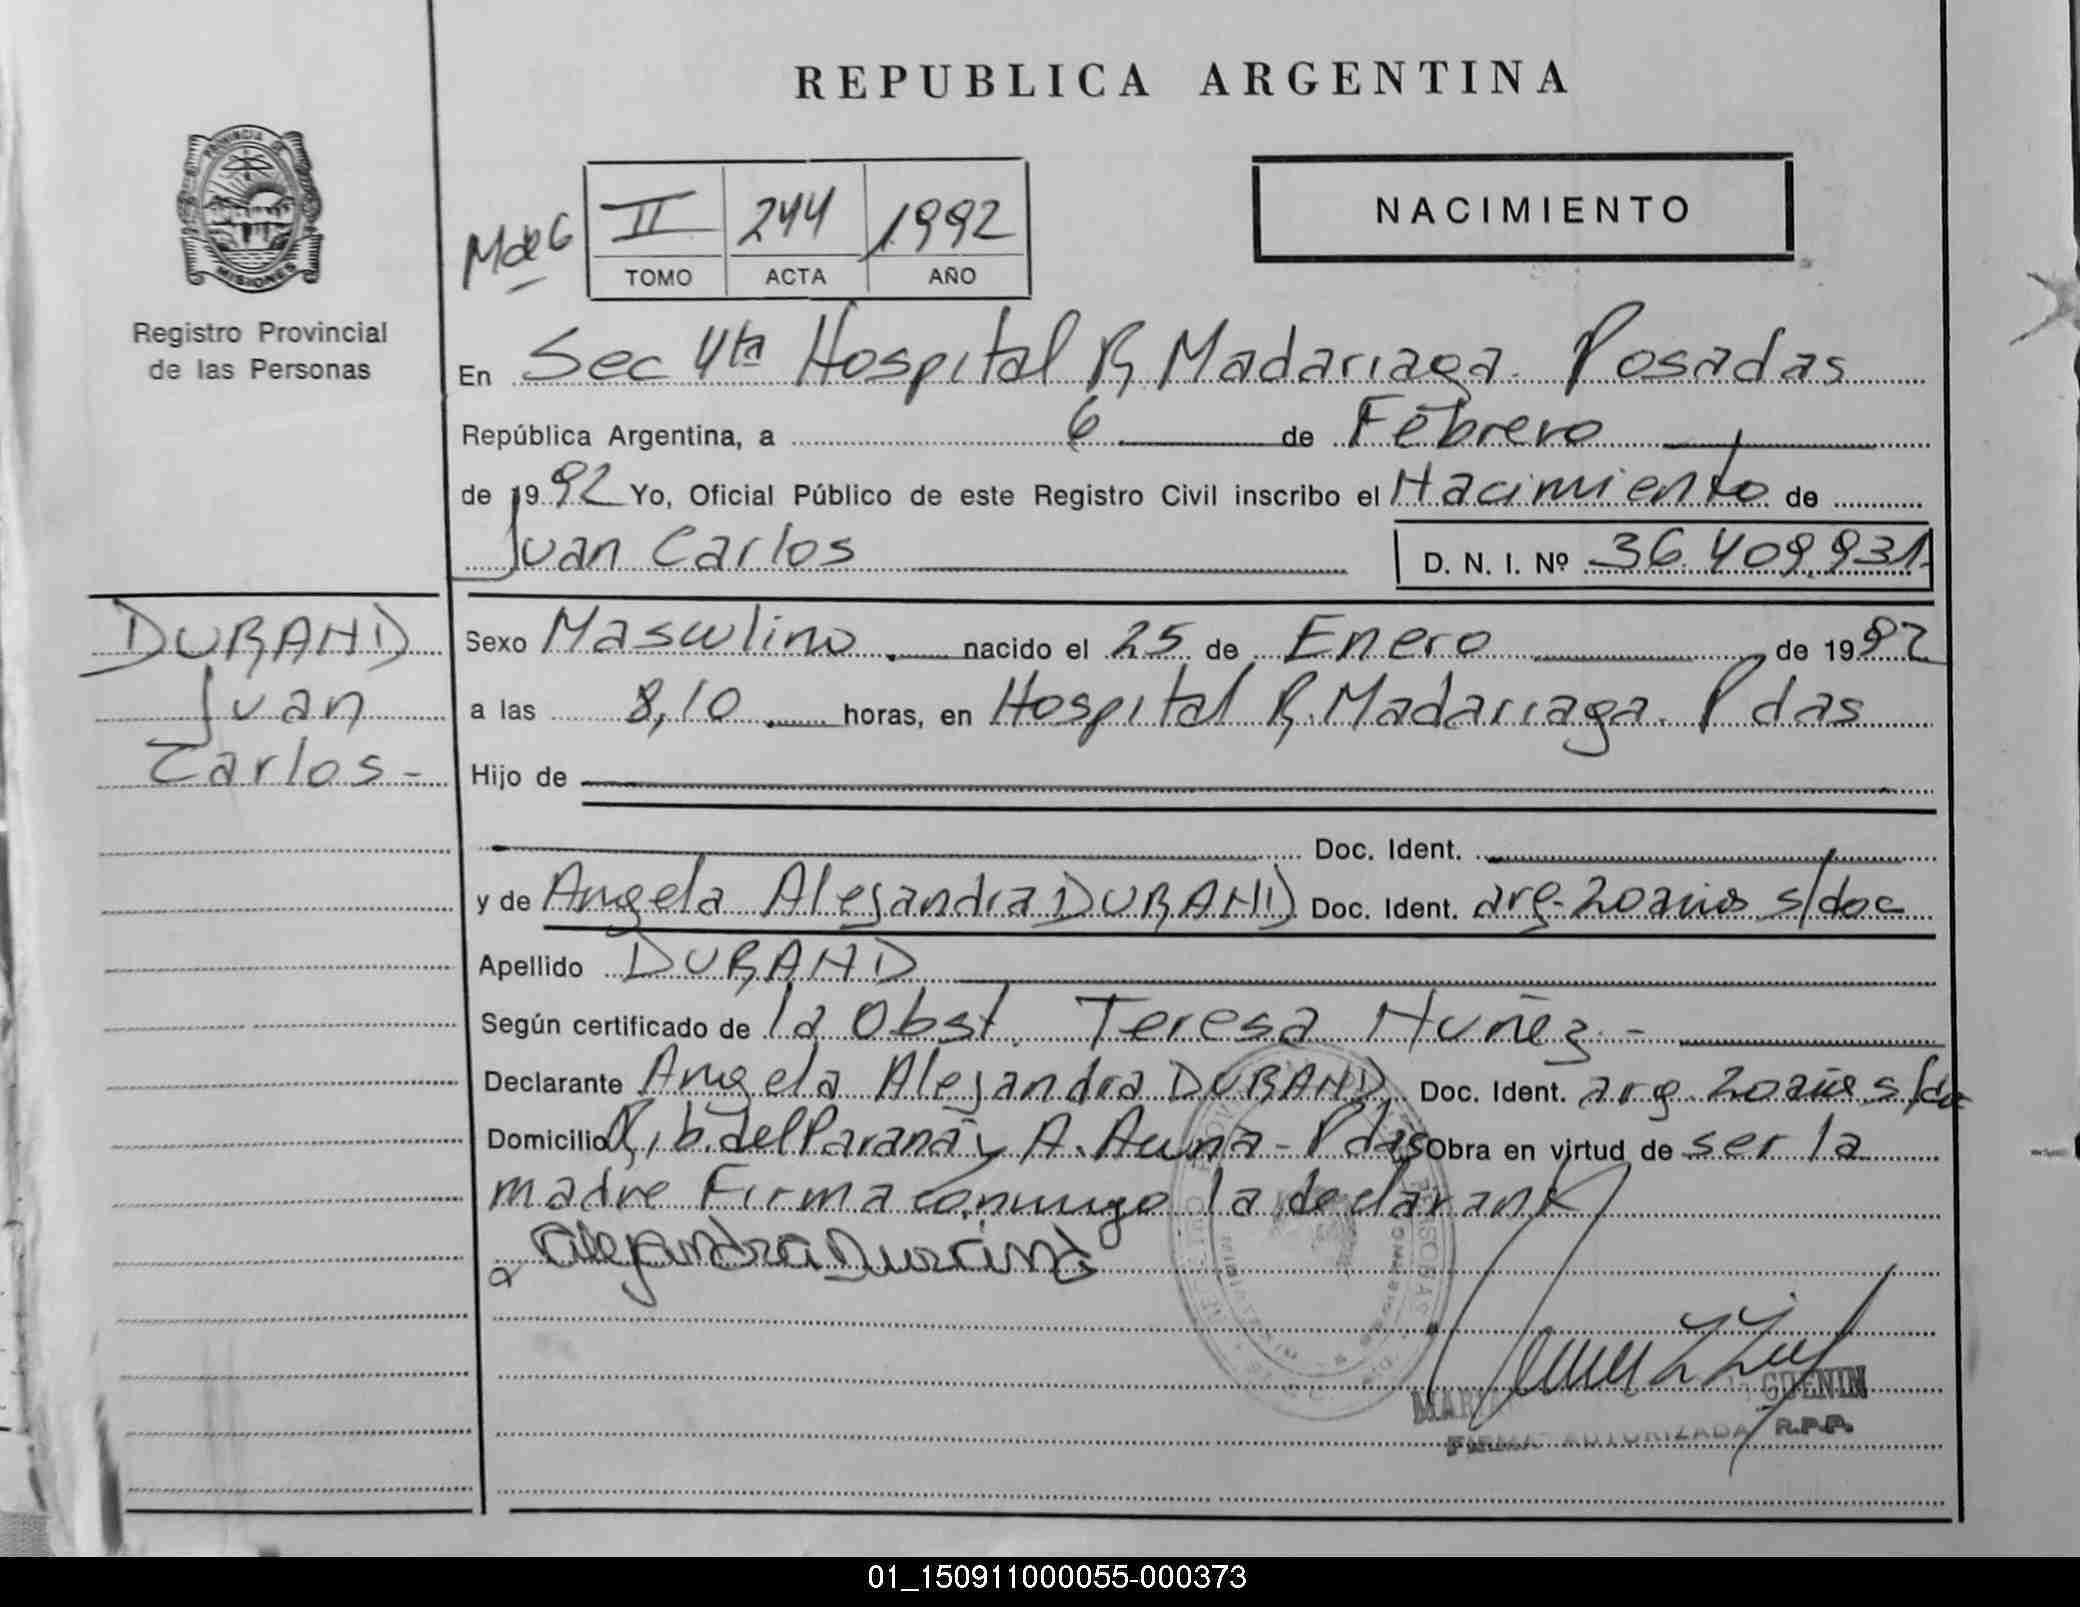 REPUBLICA ARGENTINA
PROVINCIA DE
MISIONES
Registro Provincial
de las Personas
M de G
II 244 1992
TOMO ACTA AÑO
NACIMIENTO
En Sec 4ta Hospital R, Madariaga. Posadas
República Argentina, a 6 de Febrero
de 1992 Yo, Oficial Público de este Registro Civil inscribo el Nacimiento de
Juan Carlos D. N. I. Nº 36.409.931.
DURAND
Juan
Carlos-
Sexo Masculino nacido el 25 de Enero de 1992
a las 8,10 horas, en Hospital R. Madariaga. Pdas
Hijo de
Doc. Ident.
y de Angela Alejandra DURAND Doc. Ident. arg. 20 años s/doc
Apellido DURAND
Según certificado de la Obst. Teresa Nuñez-
Declarante Angela Alejandra DURAND Doc. Ident. arg. 20 años s/doc
Domicilio Rib. del Paraná y A. - Pdas Obra en virtud de ser la
madre Firma conmigo la declarante
Alejandra Durand
GUENIN
FIRMA AUTORIZADA R.P.P.
01_150911000055-000373